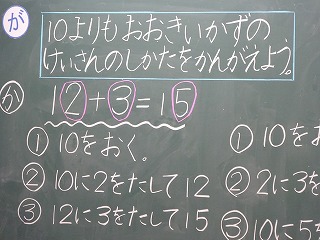 が
10よりもおおきいかずの
けいさんのしかたをかんがえよう。
か 12+3=15
①10をおく。
②10に2をたして12
③12に3をたして15
①10をお
②2に3を
③10に5